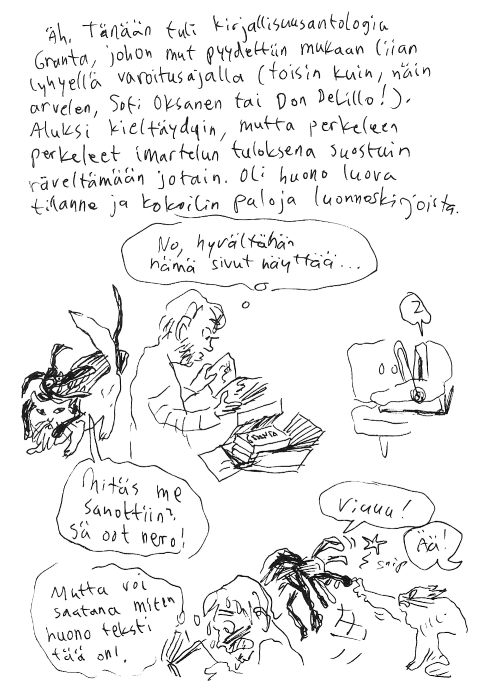 Äh. Tänään tuli kirjallisuusantologia
Granta, johon mut pyydettiin mukaan liian
lyhyellä varoitusajalla (toisin kuin, näin
arvelen, Sofi Oksanen tai Don DeLillo!).
Aluksi kieltäydyin, mutta perkeleen
perkeleet imartelun tuloksena suostuin
räveltämään jotain. Oli huono luova
tilanne ja kokoilin paloja luonnoskirjoista.
No, hyvältähän
nämä sivut näyttää...
Z
GRANTA
Mitäs me
sanottiin?
Sä oot nero!
Viuuu!
Ää!
snip
Mutta voi
saatana miten
huono teksti
tää on!